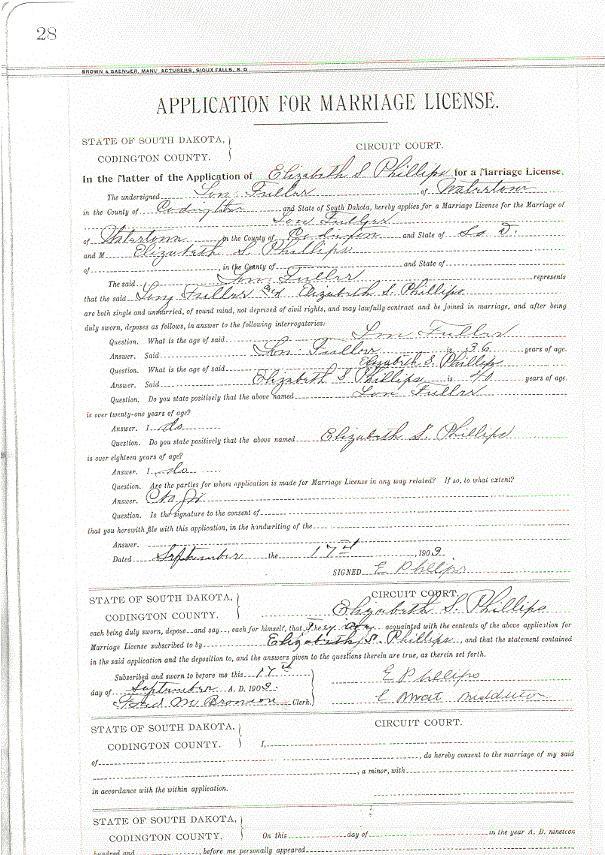 28
BROWN & SAENGER, MANUFACTURERS, SIOUX FALLS, S. D.
APPLICATION FOR MARRIAGE LICENSE.
STATE OF SOUTH DAKOTA,
CODINGTON COUNTY.
CIRCUIT COURT.
In the Matter of the Application of Elizabeth S Phillips for a Marriage License.
The undersigned Lon Fuller of Watertown
in the County of Codington and State of South Dakota, hereby applies for a Marriage License for the Marriage of
Lon Fuller
of Watertown in the County of Codington and State of So D.
and M Elizabeth S Phillips
of in the County of and State of
The said Lon Fuller represents
that the said Lon Fuller and Elizabeth S Phillips
are both single and unmarried, of sound mind, not deprived of civil rights, and may lawfully contract and be joined in marriage, and after being
duly sworn, deposes as follows, in answer to the following interrogatories:
Question. What is the age of said Lon Fuller
Answer. Said Lon Fuller is 36 years of age.
Question. What is the age of said Elizabeth S Phillips
Answer. Said Elizabeth S Phillips is 40 years of age.
Question. Do you state positively that the above named Lon Fuller
is over twenty-one years of age?
Answer. I do
Question. Do you state positively that the above named Elizabeth S Phillips
is over eighteen years of age?
Answer. I do
Question. Are the parties for whom application is made for Marriage License in any way related? If so, to what extent?
Answer.
Question. Is the signature to the consent of
that you herewith file with this application, in the handwriting of the
Answer.
Dated September the 17th, 1909.
SIGNED E Phillips
STATE OF SOUTH DAKOTA,
CODINGTON COUNTY.
CIRCUIT COURT.
Elizabeth S. Phillips
each being duly sworn, depose and say, each for himself, that They are acquainted with the contents of the above application for
Marriage License subscribed to by Elizabeth S. Phillips, and that the statement contained
in the said application and the deposition to, and the answers given to the questions therein are true, as therein set forth.
Subscribed and sworn to before me this 17th
day of September A. D. 1909
Clerk.
E Phillips
E Middleton
STATE OF SOUTH DAKOTA,
CODINGTON COUNTY.
CIRCUIT COURT.
I,
of , do hereby consent to the marriage of my said
, a minor, with
in accordance with the within application.
STATE OF SOUTH DAKOTA,
CODINGTON COUNTY.
On this day of in the year A. D. nineteen
hundred and before me personally appeared